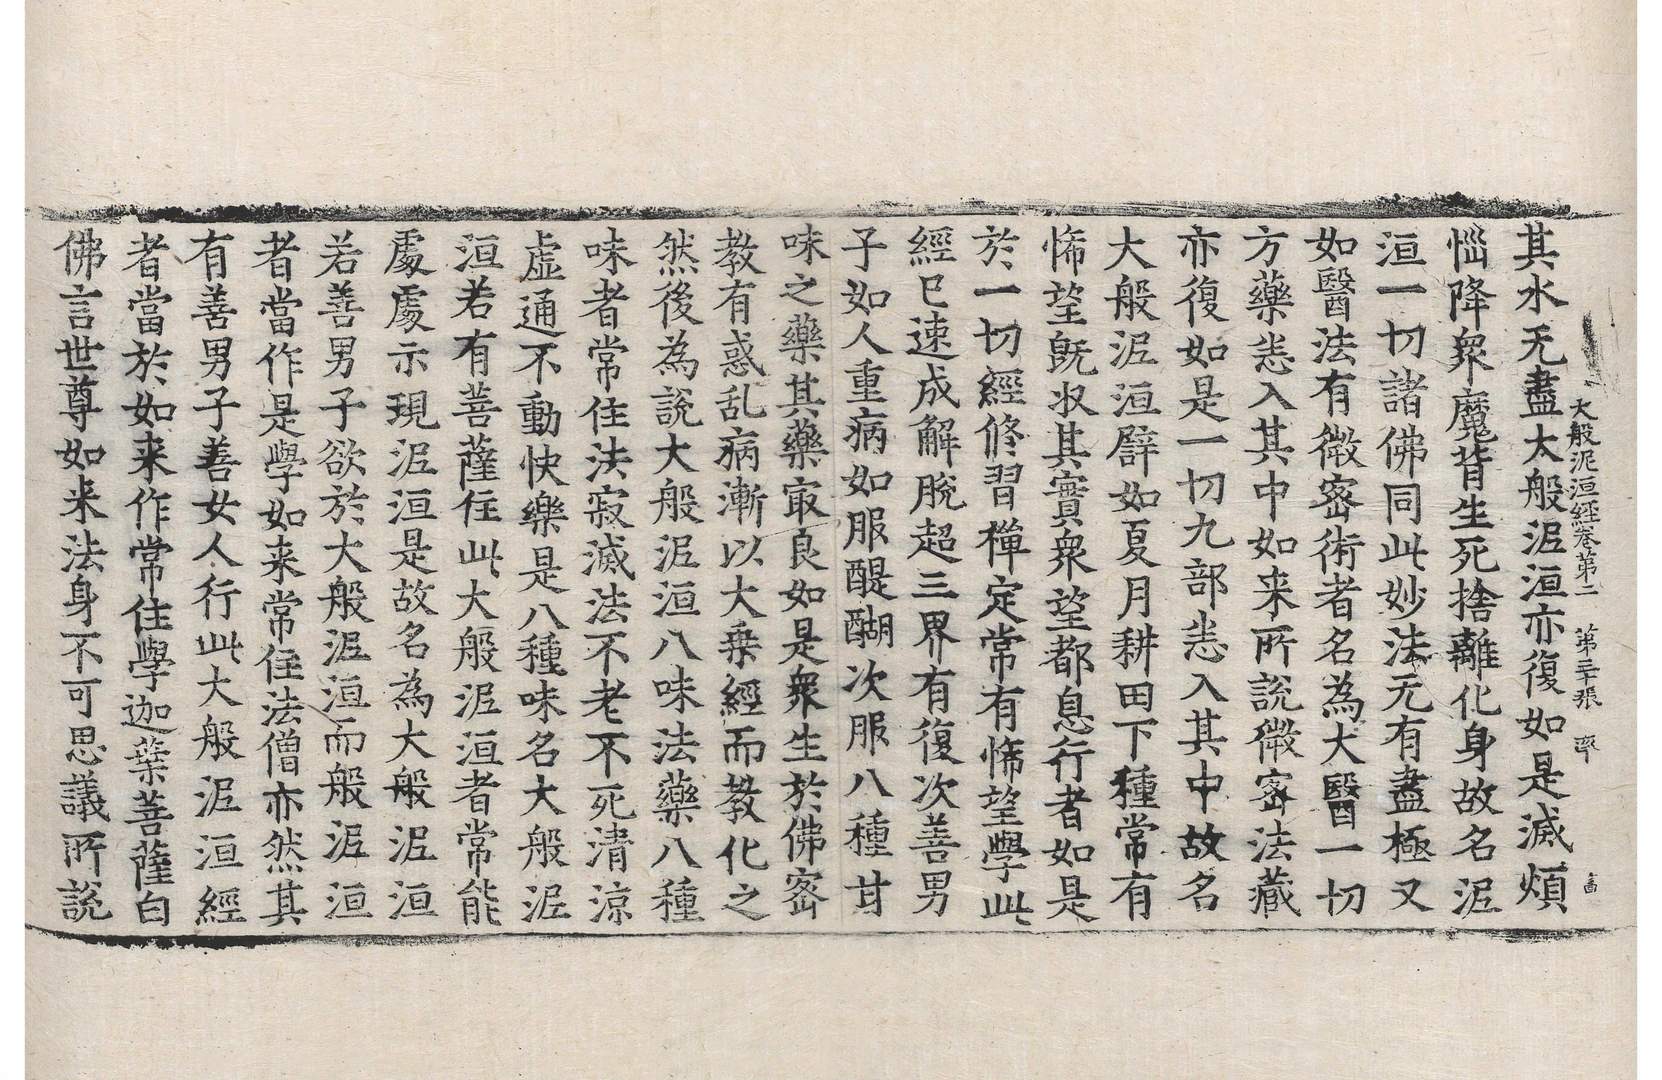 大般泥洹經卷第二　第三十張　率
其水无盡大般泥洹亦復如是滅煩
惱降衆魔背生死捨離化身故名泥
洹一切諸佛同此妙法无有盡極又
如醫法有微密術者名為大醫一切
方藥悉入其中如来所說微密法藏
亦復如是一切九部悉入其中故名
大般泥洹譬如夏月耕田下種常有
悕望旣収其實衆望都息行者如是
於一切經修習禪定常有悕望學此
經已速成解脫超三界有復次善男
子如人重病如服醍醐次服八種甘
味之藥其藥㝡良如是衆生於佛密
教有惑乱病漸以大乗經而教化之
然後為說大般泥洹八味法藥八種
味者常住法寂滅法不老不死清涼
虛通不動快樂是八種味名大般泥
洹若有菩薩住此大般泥洹者常能
處處示現泥洹是故名為大般泥洹
若善男子欲於大般泥洹而般泥洹
者當作是學如来常住法僧亦然其
有善男子善女人行此大般泥洹經
者當於如来作常住學迦葉菩薩白
佛言世尊如来法身不可思議所說